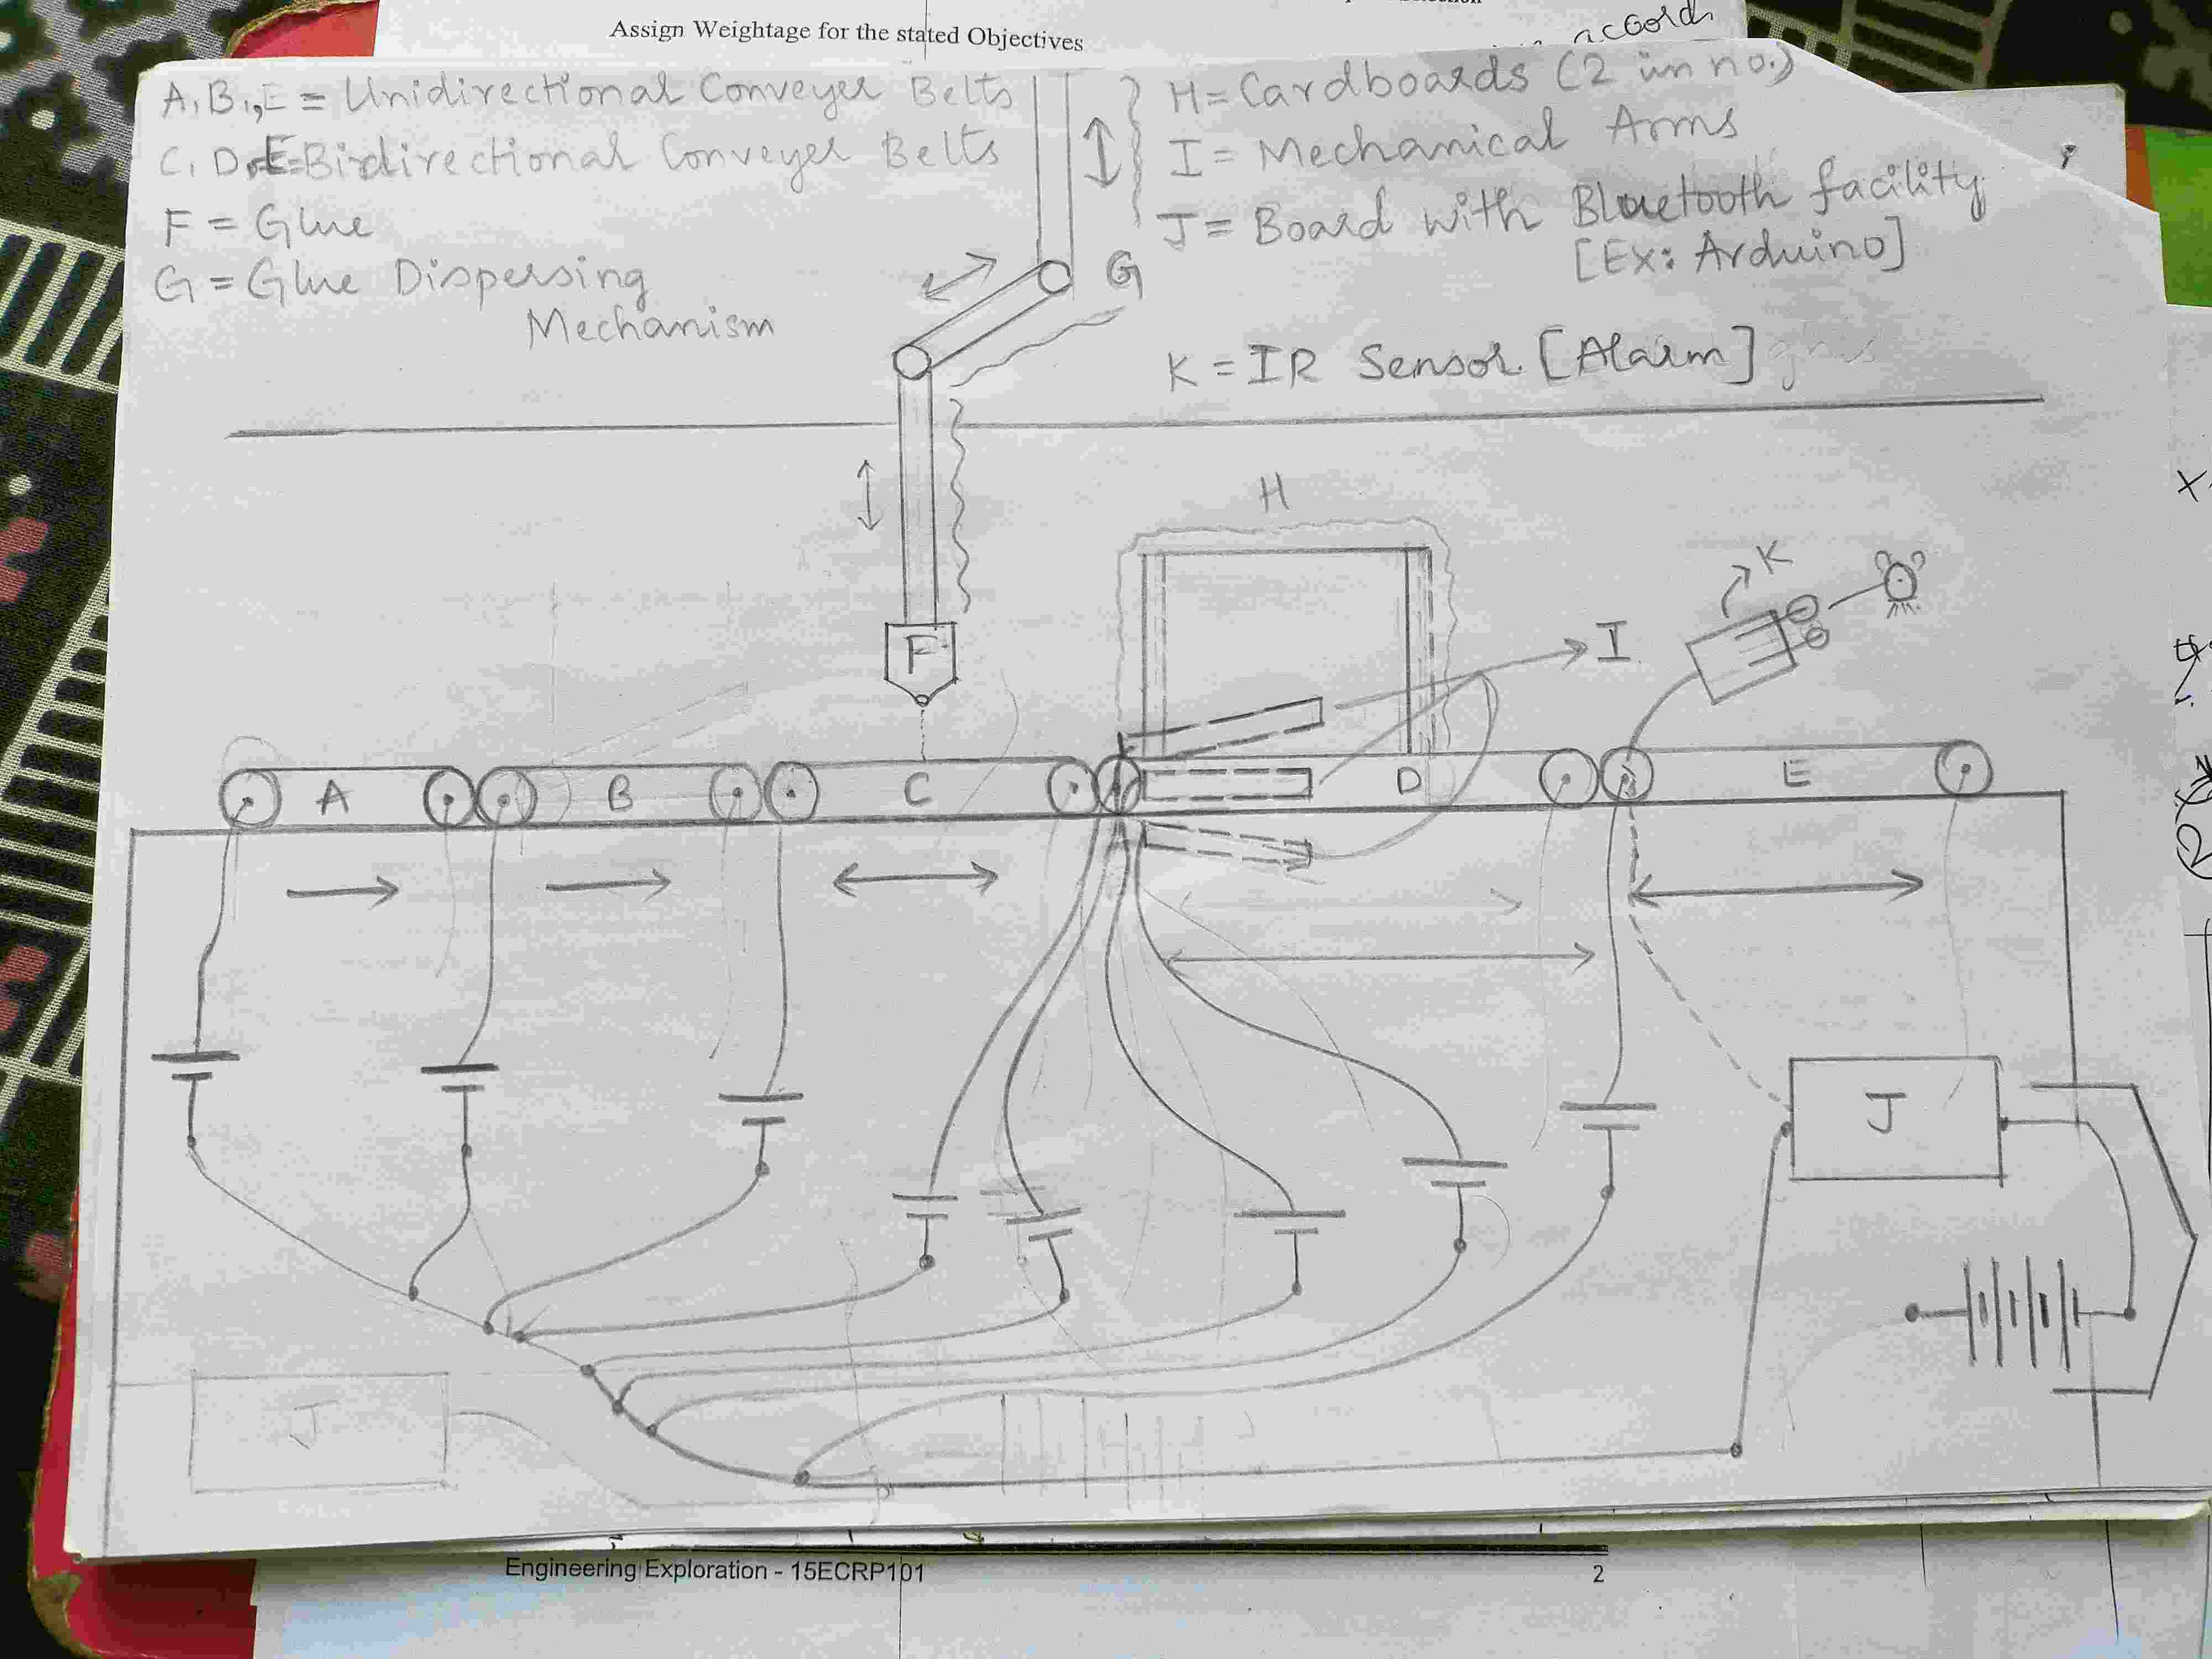 Assign Weightage for the stated Objectives
accord
A, B, E = Unidirectional Conveyer Belts
C, D, E = Birdirectional Conveyer Belts
F = Glue
G = Glue Dispersing
Mechanism
H = Cardboards (2 in no.)
I = Mechanical Arms
J = Board with Bluetooth facility
[Ex: Arduino]
K = IR Sensor. [Alarm]
G
H
K
F
I
A
B
C
D
E
J
J
Engineering Exploration - 15ECRP101
2